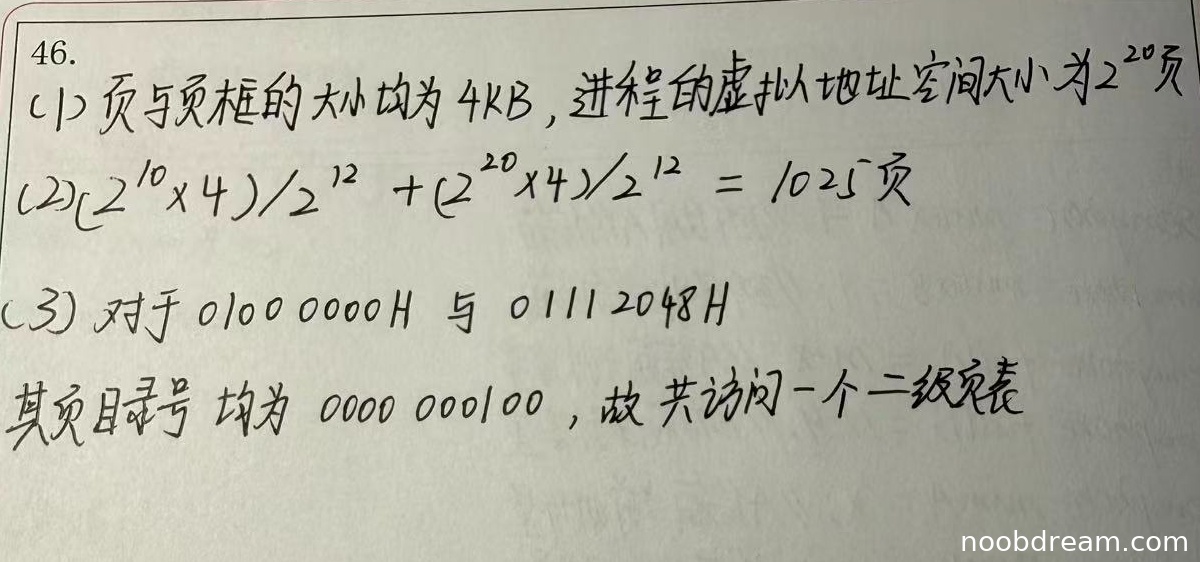 46.
(1) 页与页框的大小均为 4KB, 进程的虚拟地址空间大小为 2²⁰页
(2)(2¹⁰×4)/2¹² + (2²⁰×4)/2¹² = 1025页
(3) 对于 0100 0000H 与 0111 2048H
其页目录号 均为 0000 000100, 故 共访问一个二级页表
noobdream.com